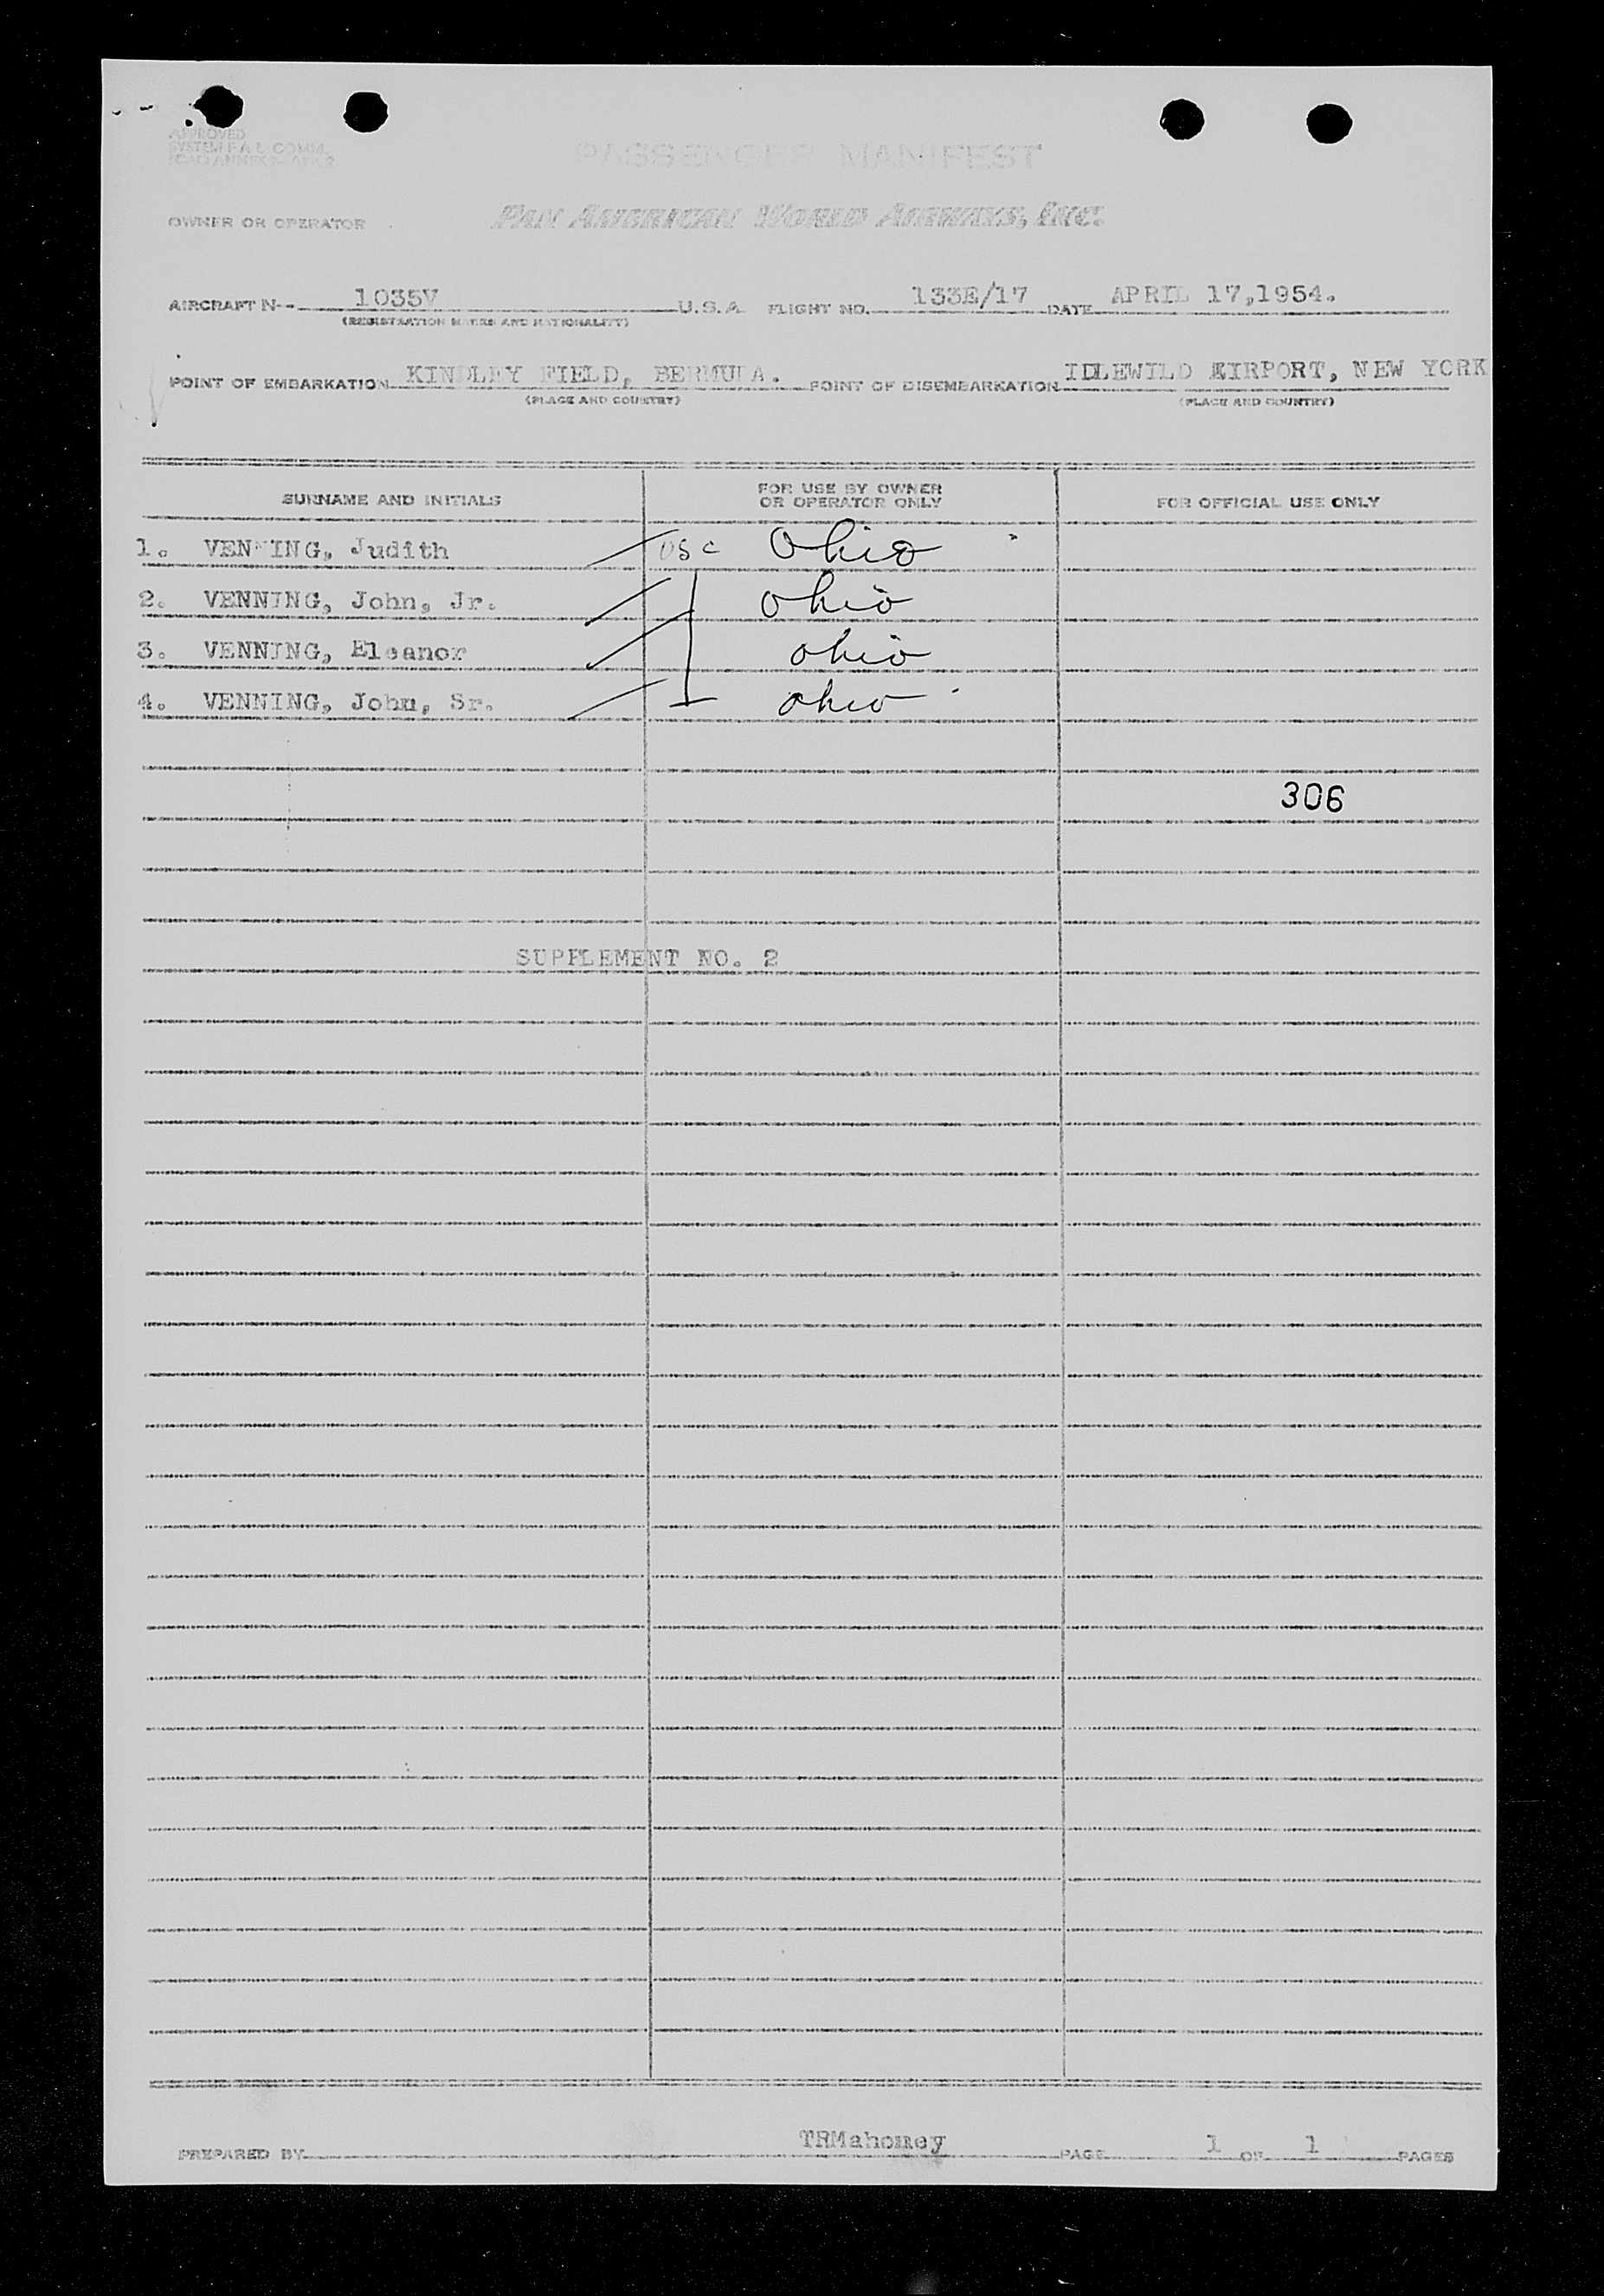 APPROVED
SYSTEM F.A.L. COMM.
PASSENGER MANIFEST
OWNER OR OPERATOR PAN AMERICAN WORLD AIRWAYS, INC.
AIRCRAFT N-- 1035V U.S.A. FLIGHT NO. 133E/17 DATE APRIL 17,1954.
(REGISTRATION MARKS AND NATIONALITY)
POINT OF EMBARKATION KINDLEY FIELD, BERMUDA. POINT OF DISEMBARKATION IDLEWILD AIRPORT, NEW YORK
(PLACE AND COUNTRY) (PLACE AND COUNTRY)
SURNAME AND INITIALS FOR USE BY OWNER OR OPERATOR ONLY FOR OFFICIAL USE ONLY
1. VENNING, Judith USC Ohio
2. VENNING, John, Jr. Ohio
3. VENNING, Eleanor Ohio
4. VENNING, John, Sr. Ohio
306
SUPPLEMENT NO. 2
PREPARED BY TRMahoney PAGE 1 OF 1 PAGES